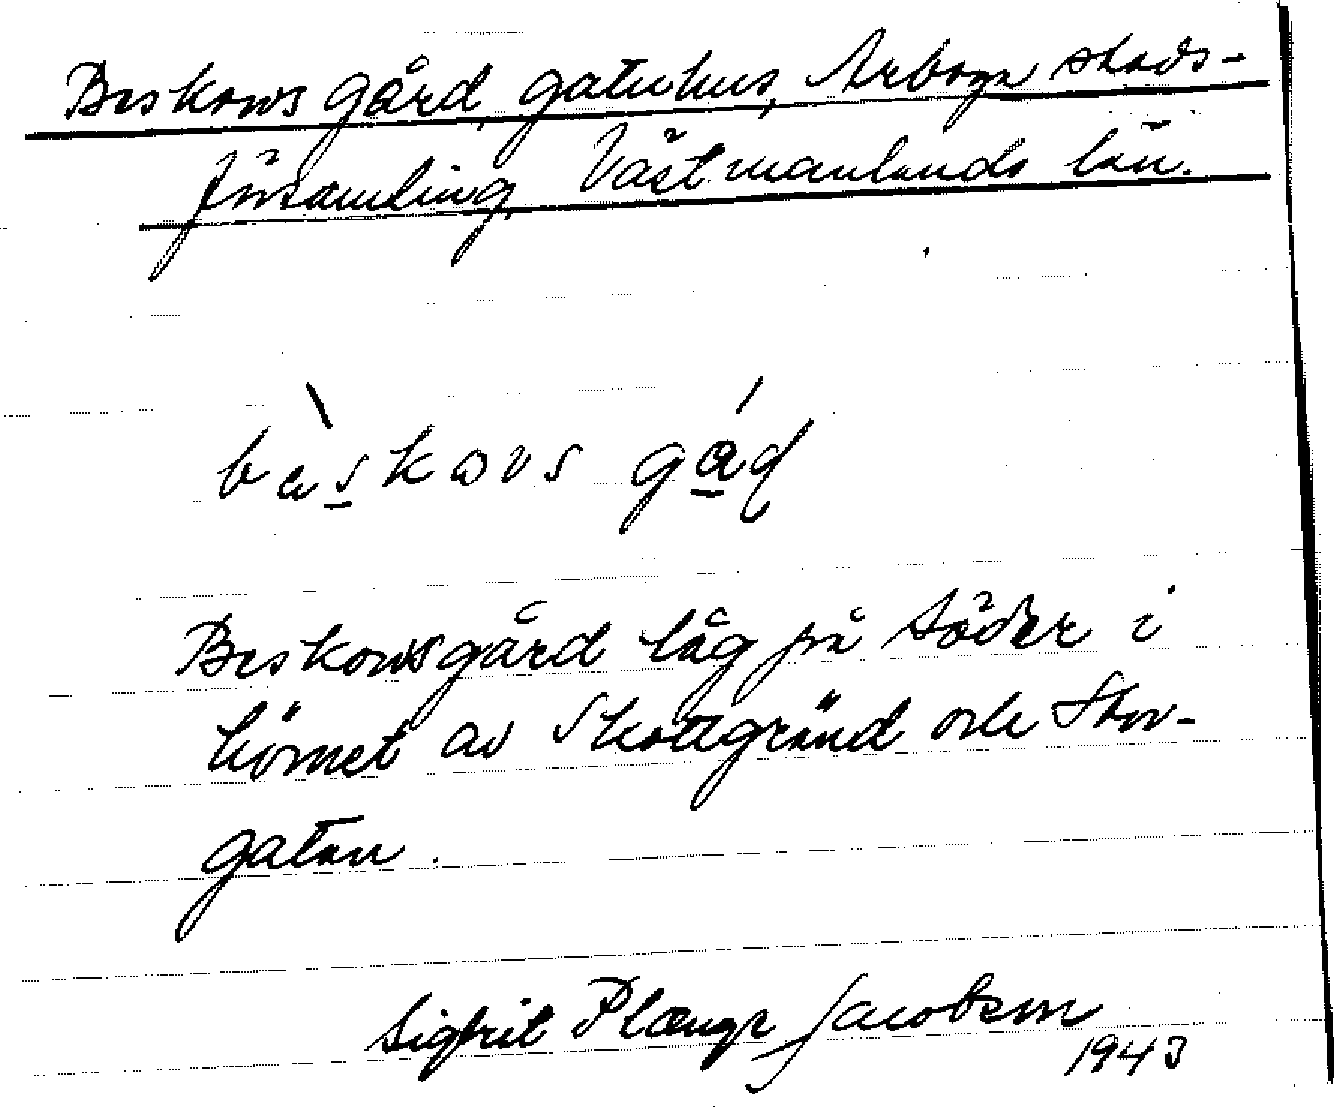 Beskows gård, gatuhus, Arboga stads-
församling, Västmanlands län.
bæskovs gád
Beskowsgård låg på Söder i
hörnet av Skottgränd och Stor-
gatan.
Sigfrit Plænge Jacobson
1943